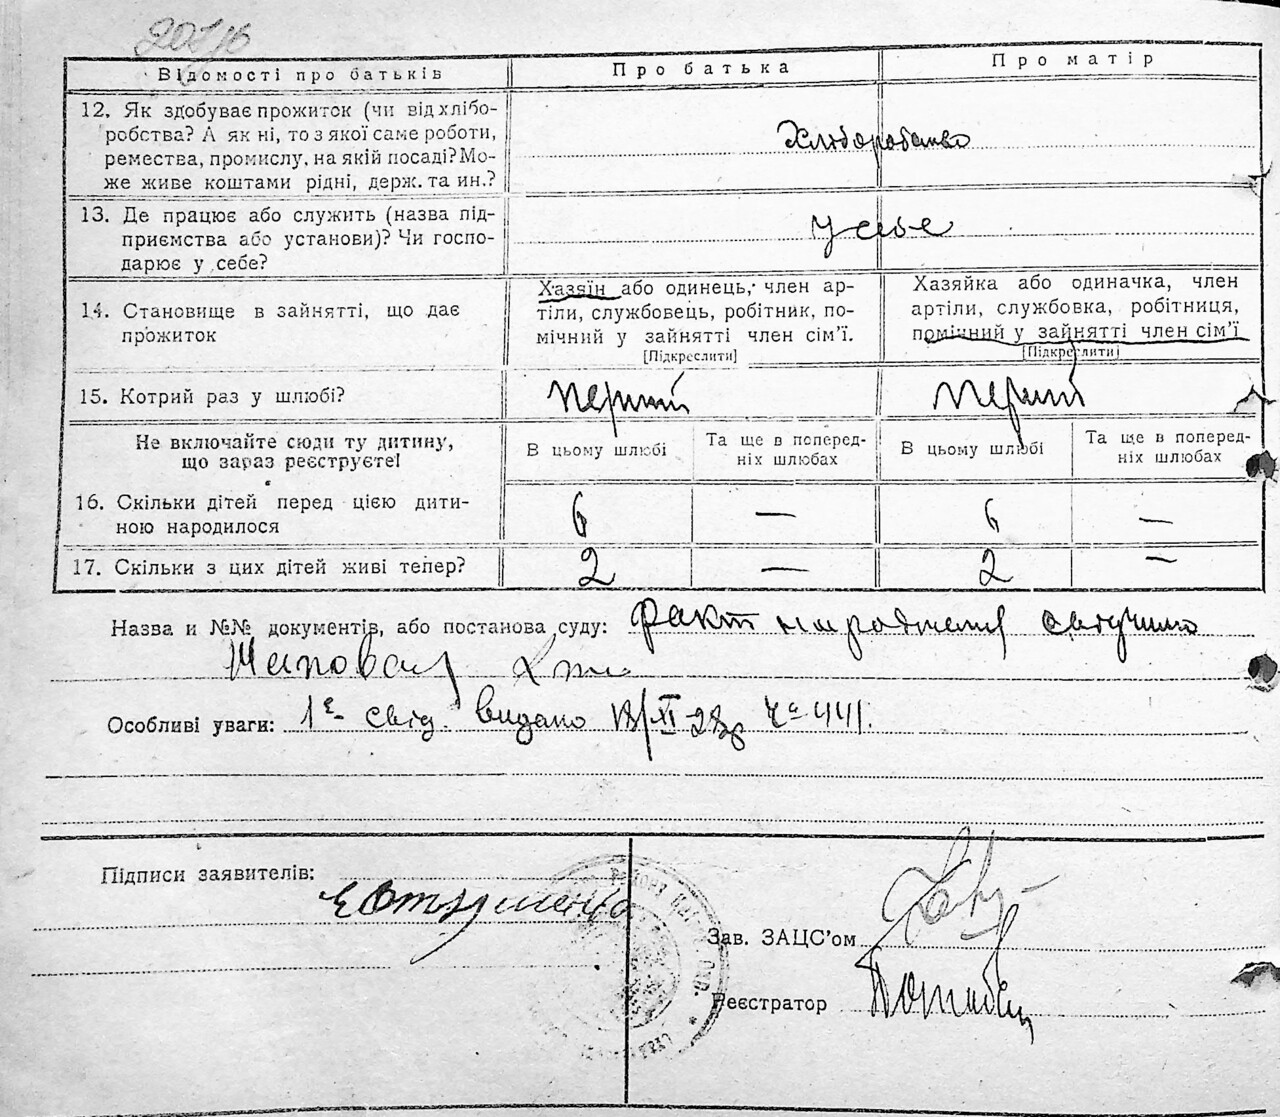 Відомості про батьків
Про батька
Про матір
12. Як здобуває прожиток (чи від хлібо-
робства? А як ні, то з якої саме роботи,
ремества, промислу, на якій посаді? Мо-
же живе коштами рідні, держ. та ин.?
Хліборобство
13. Де працює або служить (назва під-
приємства або установи)? Чи госпо-
дарює у себе?
у себе
14. Становище в зайнятті, що дає
прожиток
Хазяїн або одинець, член ар-
тіли, службовець, робітник, по-
мічний у зайнятті член сім'ї.
[Підкреслити]
Хазяйка або одиначка, член
артіли, службовка, робітниця,
помічний у зайнятті член сім'ї
[Підкреслити]
15. Котрий раз у шлюбі?
перший
перший
Не включайте сюди ту дитину,
що зараз реєструєте!
В цьому шлюбі
Та ще в поперед-
ніх шлюбах
В цьому шлюбі
Та ще в поперед-
ніх шлюбах
16. Скільки дітей перед цією дити-
ною народилося
6 — 6 —
17. Скільки з цих дітей живі тепер?
2 — 2 —
Назва и №№ документів, або постанова суду: факт народження свідчить
Шаповал
Особливі уваги: 1е свід. видано
Підписи заявителів:
Зав. ЗАЦС'ом
Реєстратор